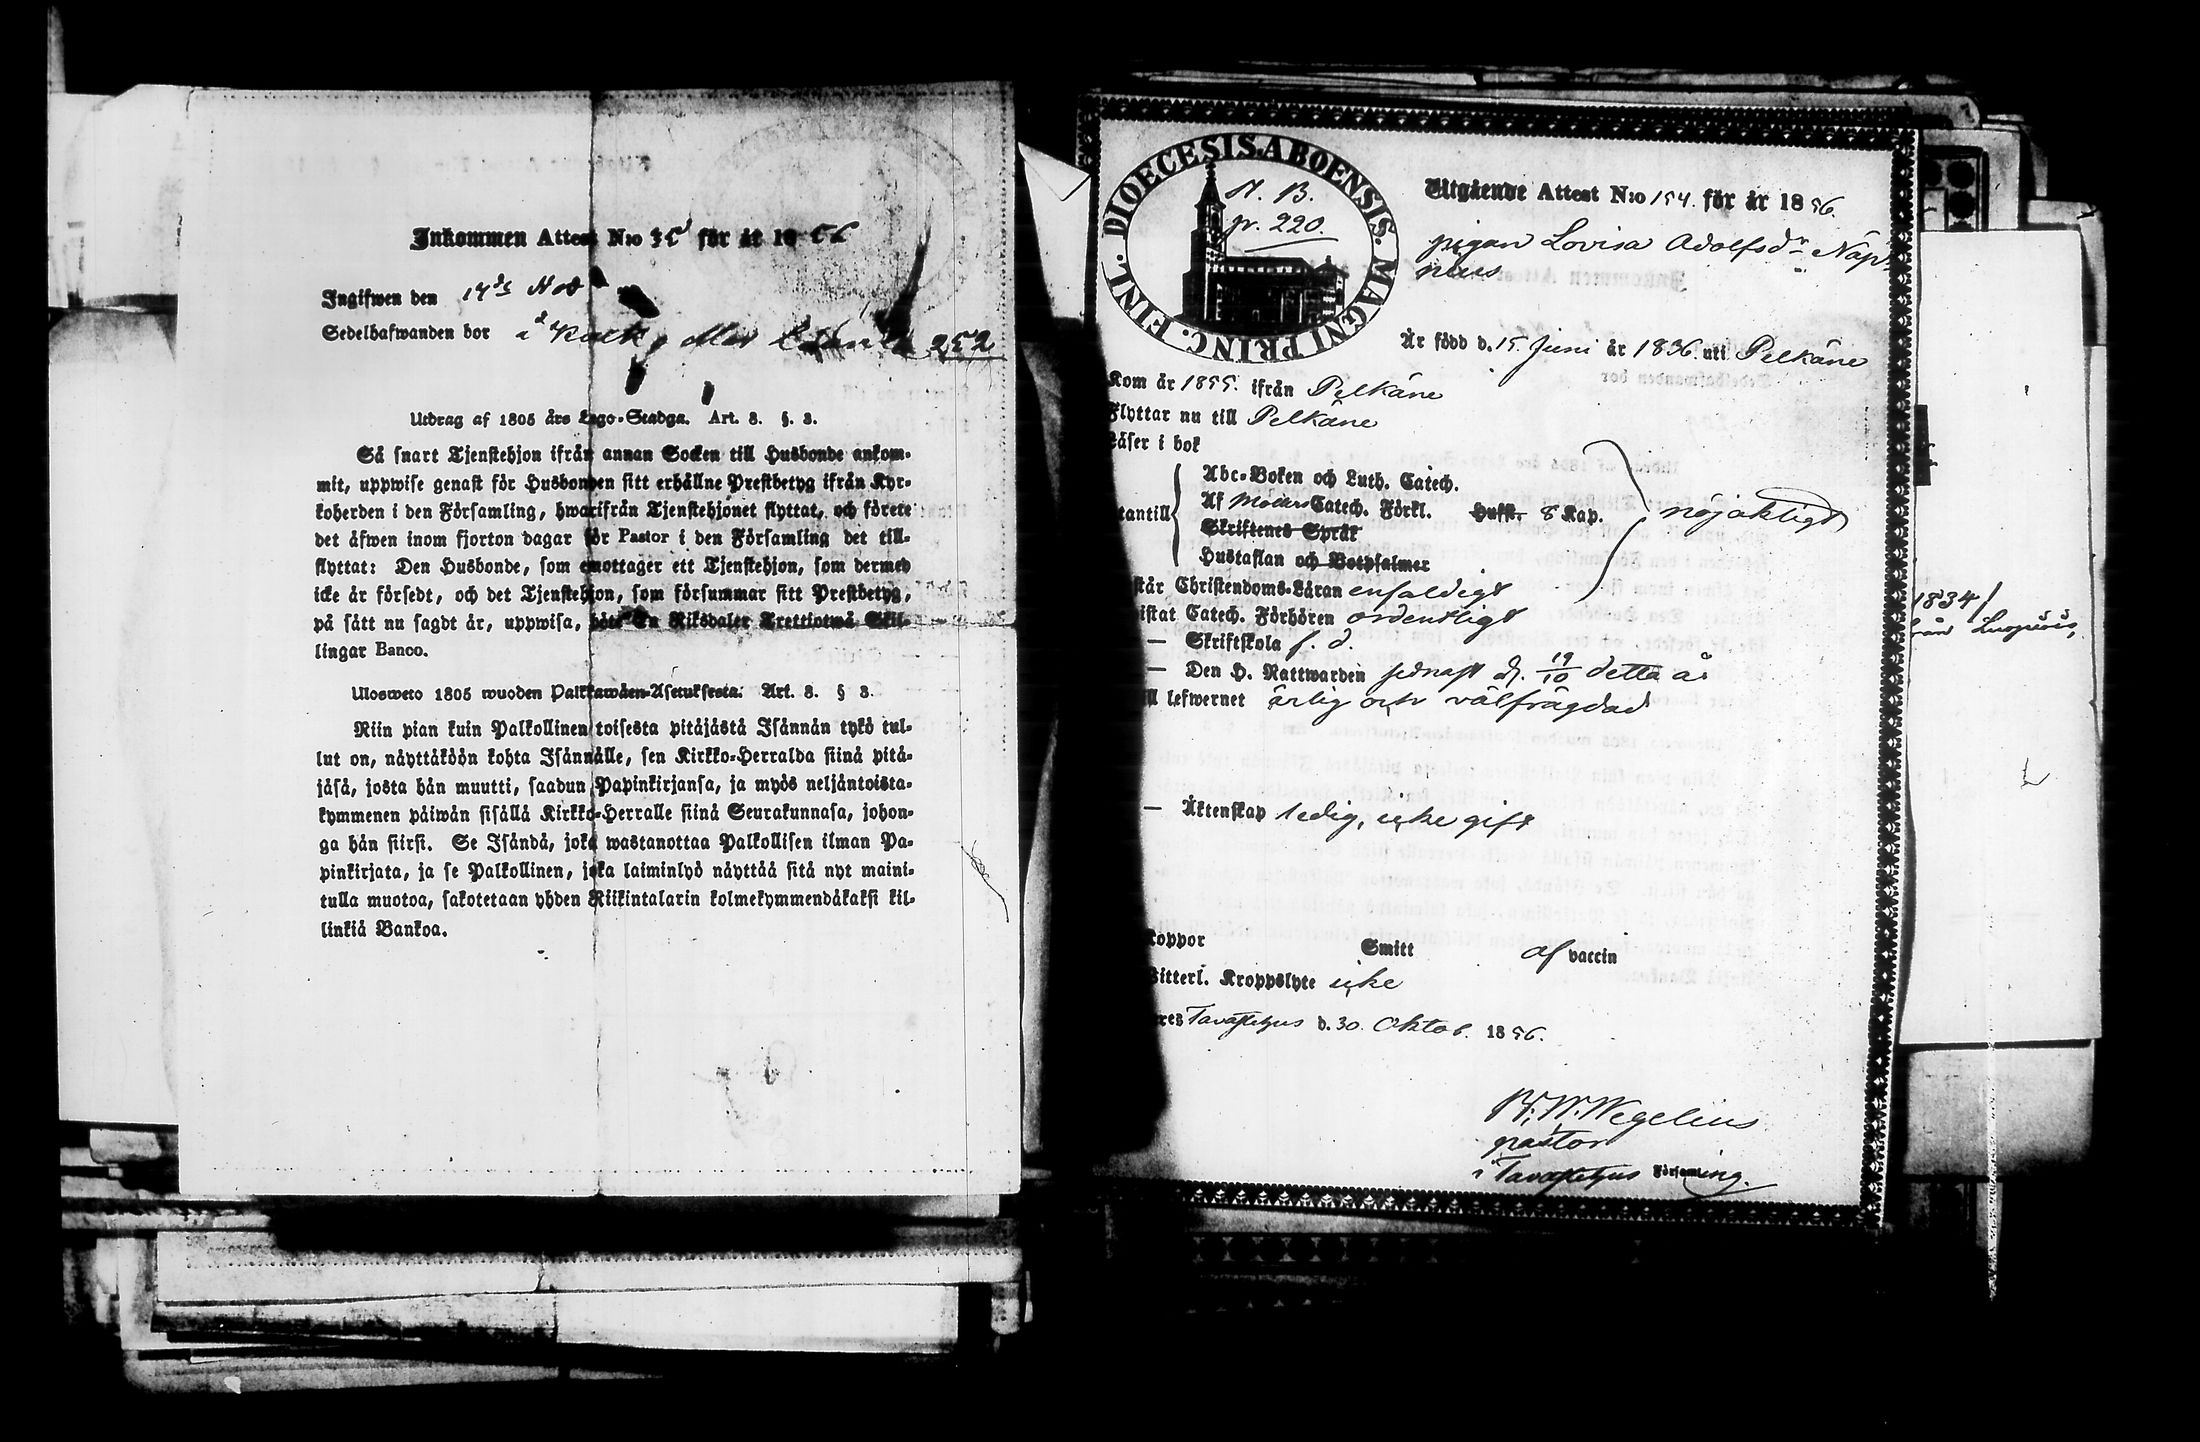 Inkommen Attest N:o 35 för år 1856
Ingifwen den 14de Nov
Sedelhafwanden bor i 252
Utdrag af 1805 års Lego-Stadga. Art. 8. §. 3.
Så snart Tjenstehjon ifrån annan Socken till Husbonde ankom-
mit, uppwise genast för Husbonden sitt erhållne Prestbetyg ifrån Kyr-
koherden i den Församling, hwarifrån Tjenstehjonet flyttat, och förete
det äfwen inom fjorton dagar för Pastor i den Församling det till-
flyttat: Den Husbonde, som emottager ett Tjenstehjon, som dermed
icke är försedt, och det Tjenstehjon, som försummar sitt Prestbetyg,
på sätt nu sagdt är, uppwisa, böte En Riksdaler Trettiotwå Skil-
lingar Banco.
Ulosweto 1805 wuoden Palkkawäen-Asetuksesta. Art. 8. § 3.
Niin pian kuin Palkollinen toisesta pitäjästä Isännän tykö tul-
lut on, näyttäköön kohta Isännälle, sen Kirkko-Herralda siinä pitä-
jäsä, josta hän muutti, saadun Papinkirjansa, ja myös neljäntoista-
kymmenen päiwän sisällä Kirkko-Herralle siinä Seurakunnasa, johon-
ga hän siirsi. Se Isändä, joka wastanottaa Palkollisen ilman Pa-
pinkirjata, ja se Palkollinen, joka laiminlyö näyttää sitä nyt maini-
tulla muotoa, sakotetaan yhden Riikintalarin kolmekymmendäkaksi kil-
linkiä Bankoa.
DIOECESIS.ABOENSIS.MAGNI PRINC. FINL.
N. B.
p. 220.
Utgående Attest N:o 154. för år 1856.
pigan Lovisa Adolfsdr Näp-
nius
Är född d. 15 Juni år 1836. uti Pelkäne
Kom år 1855. ifrån Pelkäne
Flyttar nu till Pelkäne
Läser i bok
Abc-Boken och Luth. Catech.
utantill Af Möllers Catech. Förkl. Hufst. 8 Kap. nöjaktligt
Skriftenes Språk
Hustaflan och Botpsalmer
står Christendoms-Läran enfaldigt
wistat Catech. Förhören ordentligt
— Skriftskola f. d.
— Den H. Nattwarden sednast d. 19/10 detta år
ill lefwernet ärlig och välfrägdad
— Äktenskap ledig, icke gift
Koppor Smitt af vaccin
Witterl. Kroppslyte icke
res Tavastehus d. 30. Oktob. 1856.
Wegelius
pastor
i Tavastehus Församling.
1834
från Luopiois,